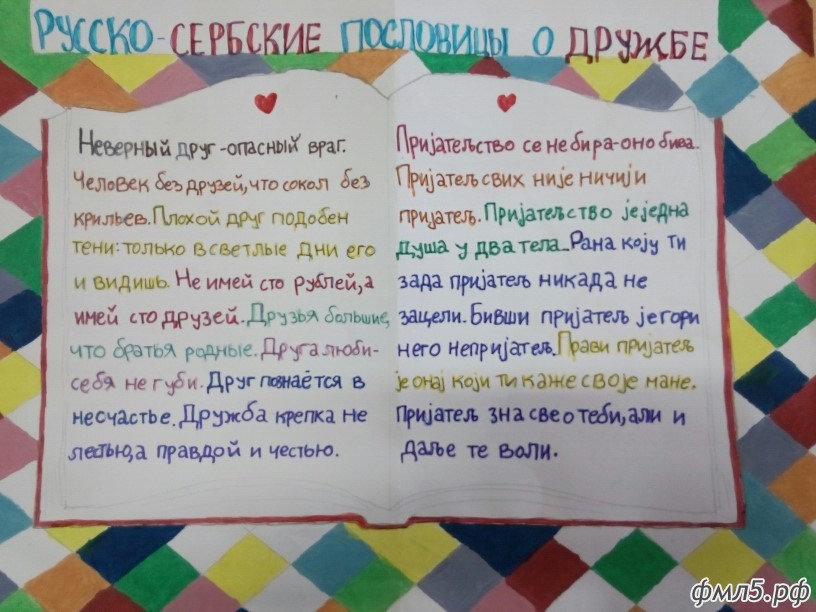 РУССКО-СЕРБСКИЕ ПОСЛОВИЦЫ О ДРУЖБЕ
Неверный друг - опасный враг.
Человек без друзей, что сокол без
крильев. Плохой друг подобен
тени: только в светлые дни его
и видишь. Не имей сто рублей, а
имей сто друзей. Друзья большие,
что братья родные. Друга люби-
себя не губи. Друг познаётся в
несчастье. Дружба крепка не
лестью, а правдой и честью.
Пријатељство се не бира-оно бива.
Пријатељ свих није ничији
пријатељ. Пријатељство је једна
душа у два тела. Рана коју ти
зада пријатељ никада не
зацели. Бивши пријатељ је гори
него непријатељ. Прави пријатељ
је онај који ти каже своје мане.
Пријатељ зна све о теби, али и
даље те воли.
фмл5.рф